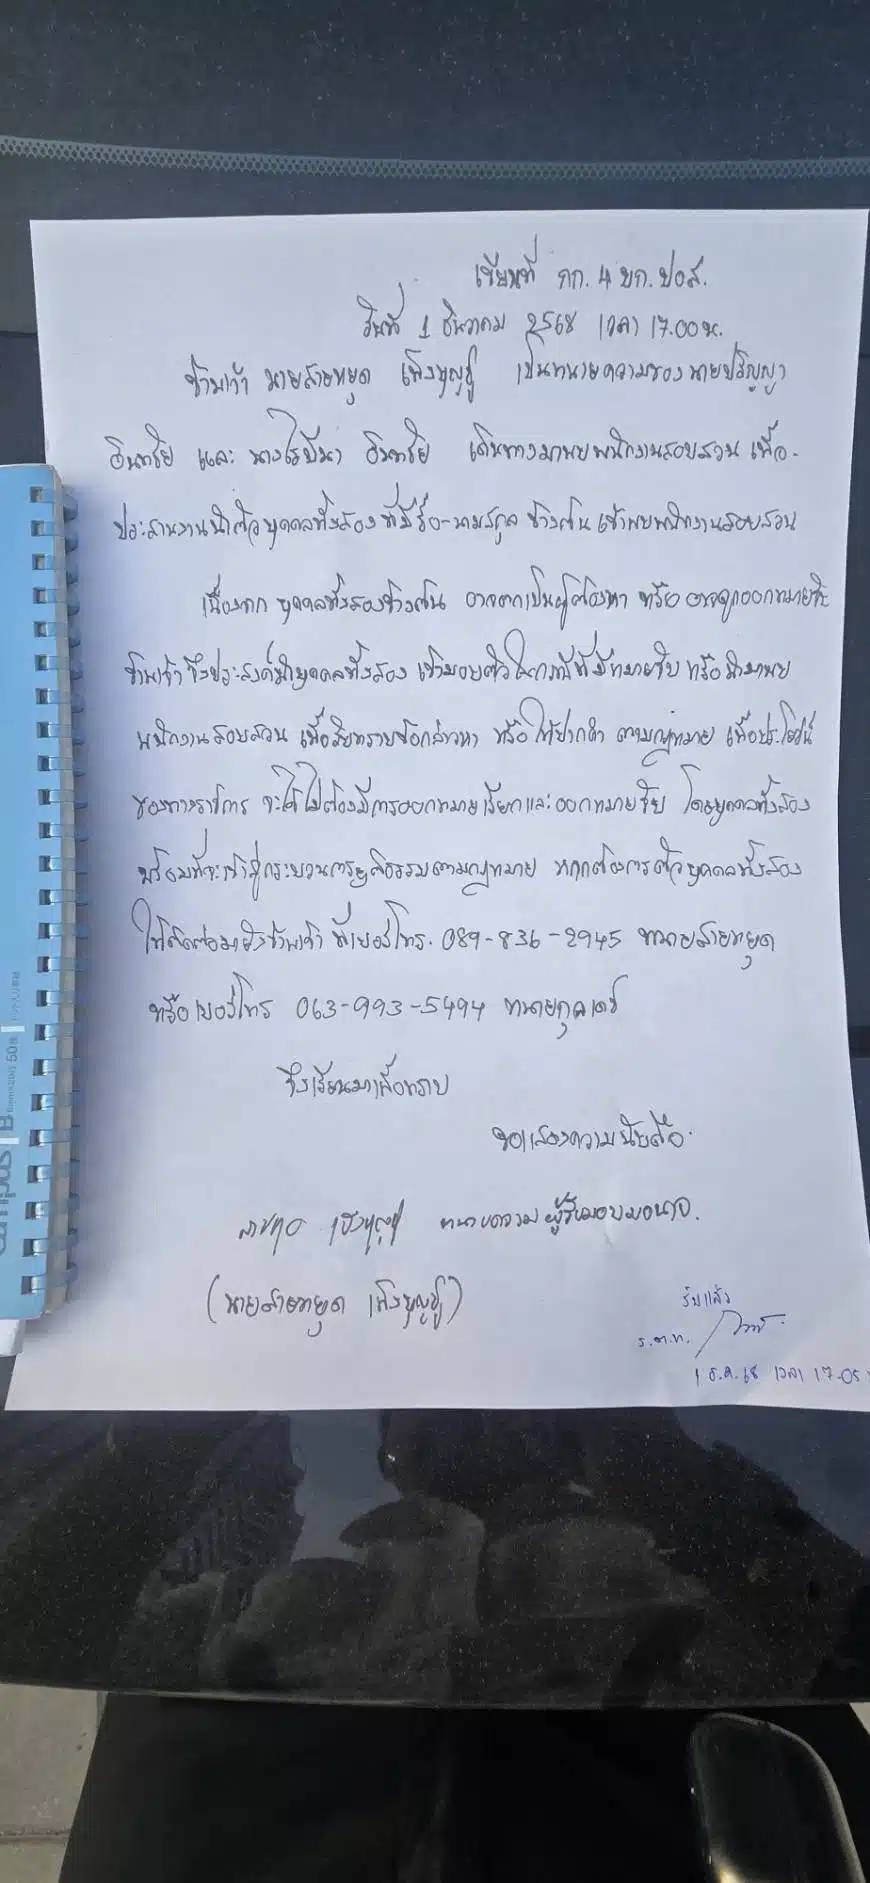 เขียนที่ กก. 4 บก. ปอศ.
วันที่ 1 ธันวาคม 2568 เวลา 17.00 น.
ข้าพเจ้า นายสายหยุด เพ็งบุญชู เป็นทนายความของ นายปริญญา
อินทรีย์ และ นาง อินทรีย์ เดินทางมาพบพนักงานสอบสวน เพื่อ-
ประสานงานนำตัวบุคคลทั้งสอง ที่มีชื่อ-นามสกุล ข้างต้น เข้าพบพนักงานสอบสวน
เนื่องจาก บุคคลทั้งสองข้างต้น อาจตกเป็นผู้ต้องหา หรือ อาจถูกออกหมายจับ
ข้าพเจ้าจึงประสงค์นำบุคคลทั้งสอง เข้ามอบตัวในกรณีที่มีหมายจับ หรือนำมาพบ
พนักงานสอบสวน เพื่อรับทราบข้อกล่าวหา หรือ ให้ปากคำ ตามกฎหมาย เพื่อประโยชน์
ของทางราชการ จะได้ไม่ต้องมีการออกหมายเรียกและออกหมายจับ โดยบุคคลทั้งสอง
พร้อมที่จะเข้าสู่กระบวนการยุติธรรมตามกฎหมาย หากต้องการตัวบุคคลทั้งสอง
ให้ติดต่อมายังข้าพเจ้า ที่เบอร์โทร. 089-836-2945 ทนายสายหยุด
หรือเบอร์โทร 063-993-5494 ทนายกุลเดช
จึงเรียนมาเพื่อทราบ
ขอแสดงความนับถือ
สายหยุด เพ็งบุญชู ทนายความผู้รับมอบอำนาจ.
(นายสายหยุด เพ็งบุญชู)
รับแล้ว
ร.ต.ท.
1 ธ.ค. 68 เวลา 17.05
Campus
B